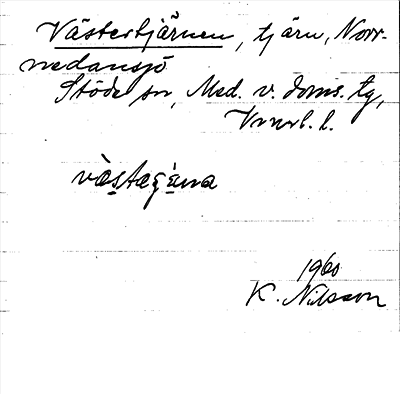 Västertjärnen, tjärn, Norr-
nedansjö
Stöde sn, Med. v. doms. tg,
Vnrl. l.
1960
K. Nilsson